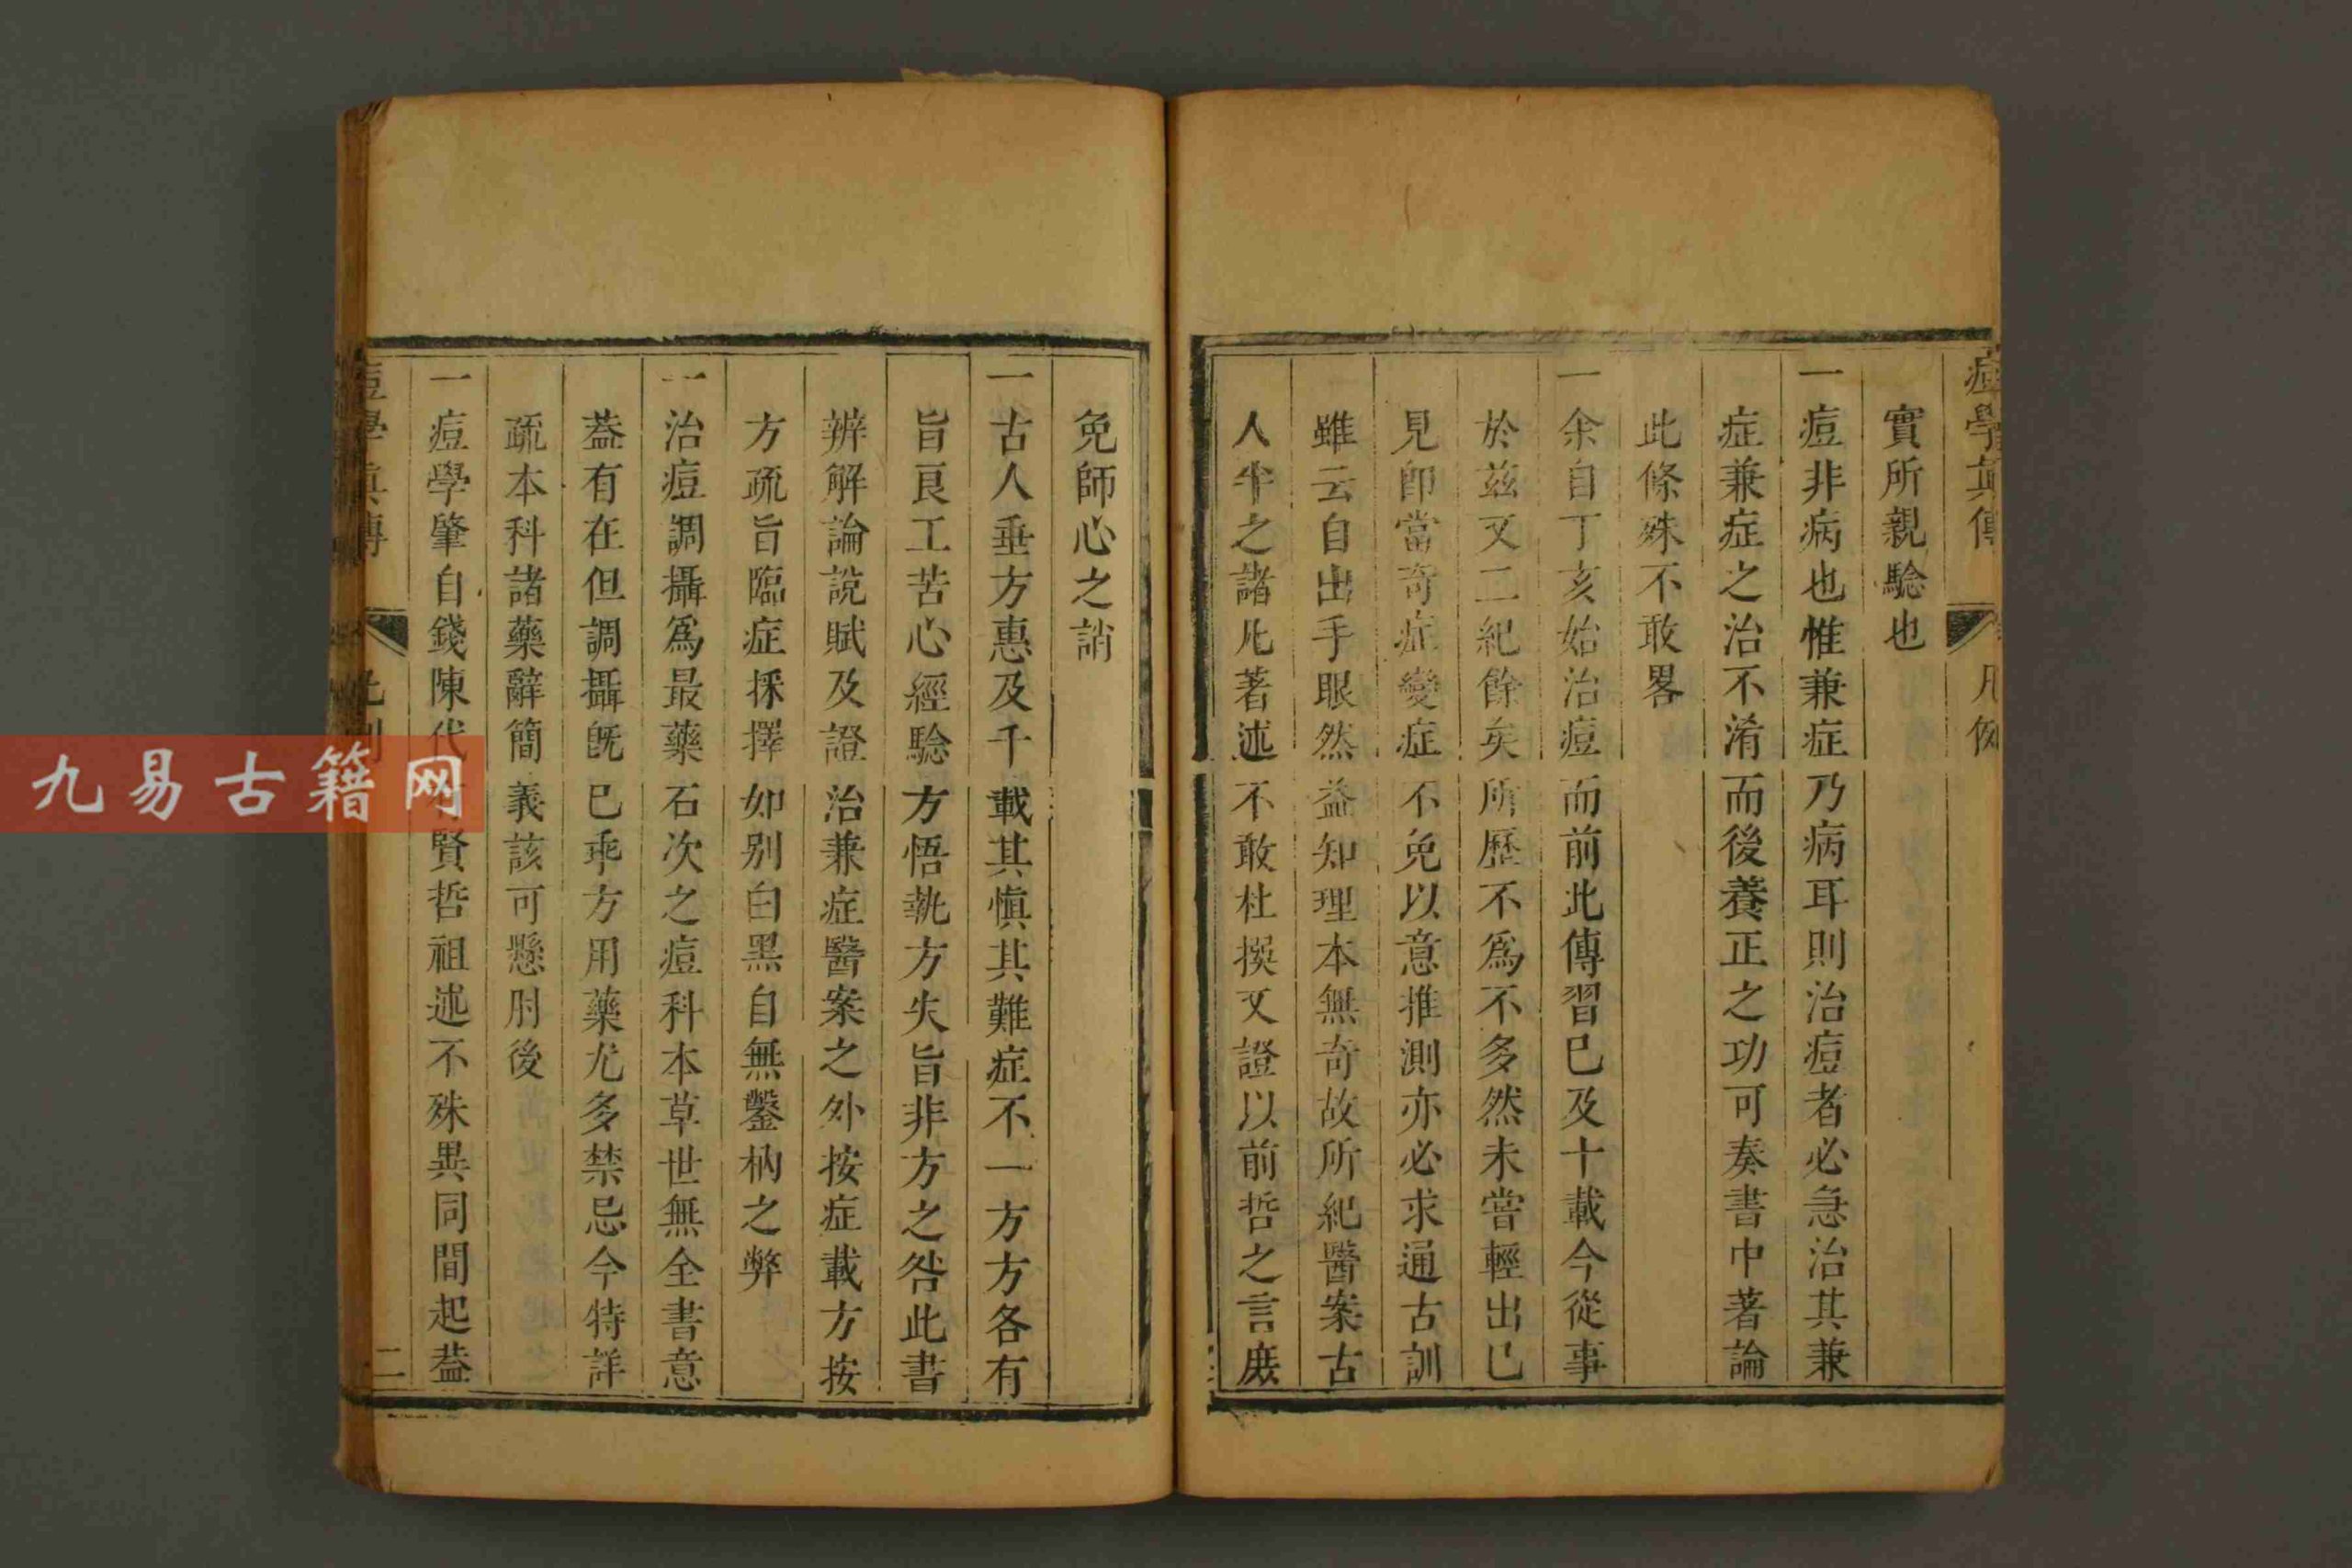 痘學真傳 凡例
實所親驗也
一痘非病也惟兼症乃病耳則治痘者必急治其兼
症兼症之治不淆而後養正之功可奏書中著論
此條殊不敢畧
一余自丁亥始治痘而前此傳習已及十載今從事
於兹又二紀餘矣所歷不爲不多然未嘗輕出已
見卽當奇症變症不免以意推測亦必求通古訓
雖云自出手眼然益知理本無奇故所紀醫案古
人半之諸凡著述不敢杜撰又證以前哲之言庶
免師心之誚
一古人垂方惠及千載其愼其難症不一方方各有
旨良工苦心經騐方悟執方失旨非方之咎此書
辨解論說賦及證治兼症醫案之外按症載方按
方疏旨臨症採擇如别白黑自無鑿枘之弊
一治痘調攝爲最藥石次之痘科本草世無全書意
葢有在但調攝旣已乖方用藥尤多禁忌今特詳
疏本科諸藥辭簡義該可懸肘後
一痘學肇自錢陳代賢哲祖述不殊異同間起葢
痘學真傳 凡例 二
九易古籍网